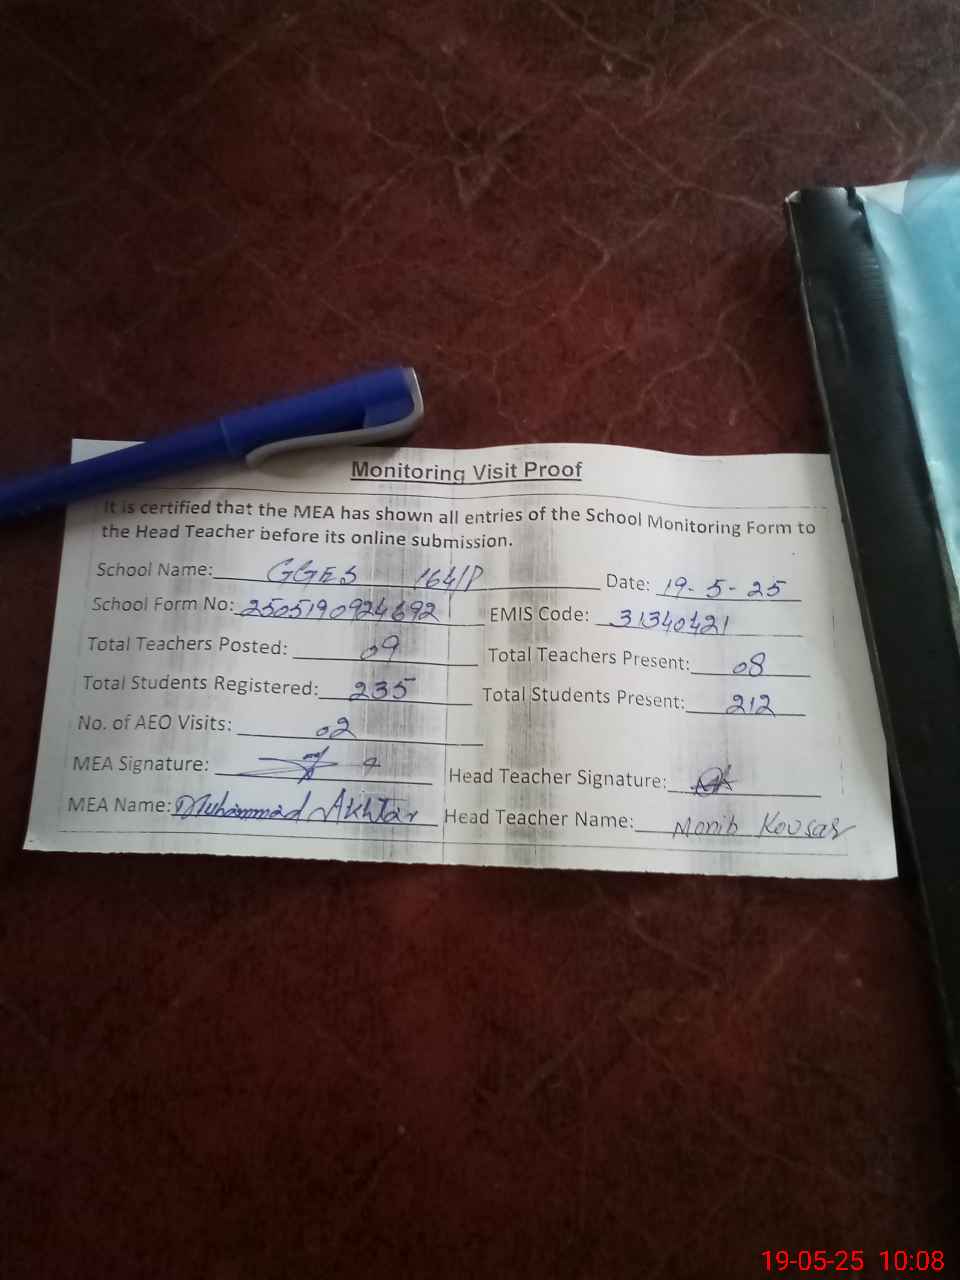 Monitoring Visit Proof
It is certified that the MEA has shown all entries of the School Monitoring Form to
the Head Teacher before its online submission.
School Name: GGES 164/P Date: 19-5-25
School Form No: 2505190924692 EMIS Code: 31340421
Total Teachers Posted: 09 Total Teachers Present: 08
Total Students Registered: 235 Total Students Present: 212
No. of AEO Visits: 02
MEA Signature: Head Teacher Signature:
MEA Name: Muhammad Akhtar Head Teacher Name: Kousar
19-05-25 10:08